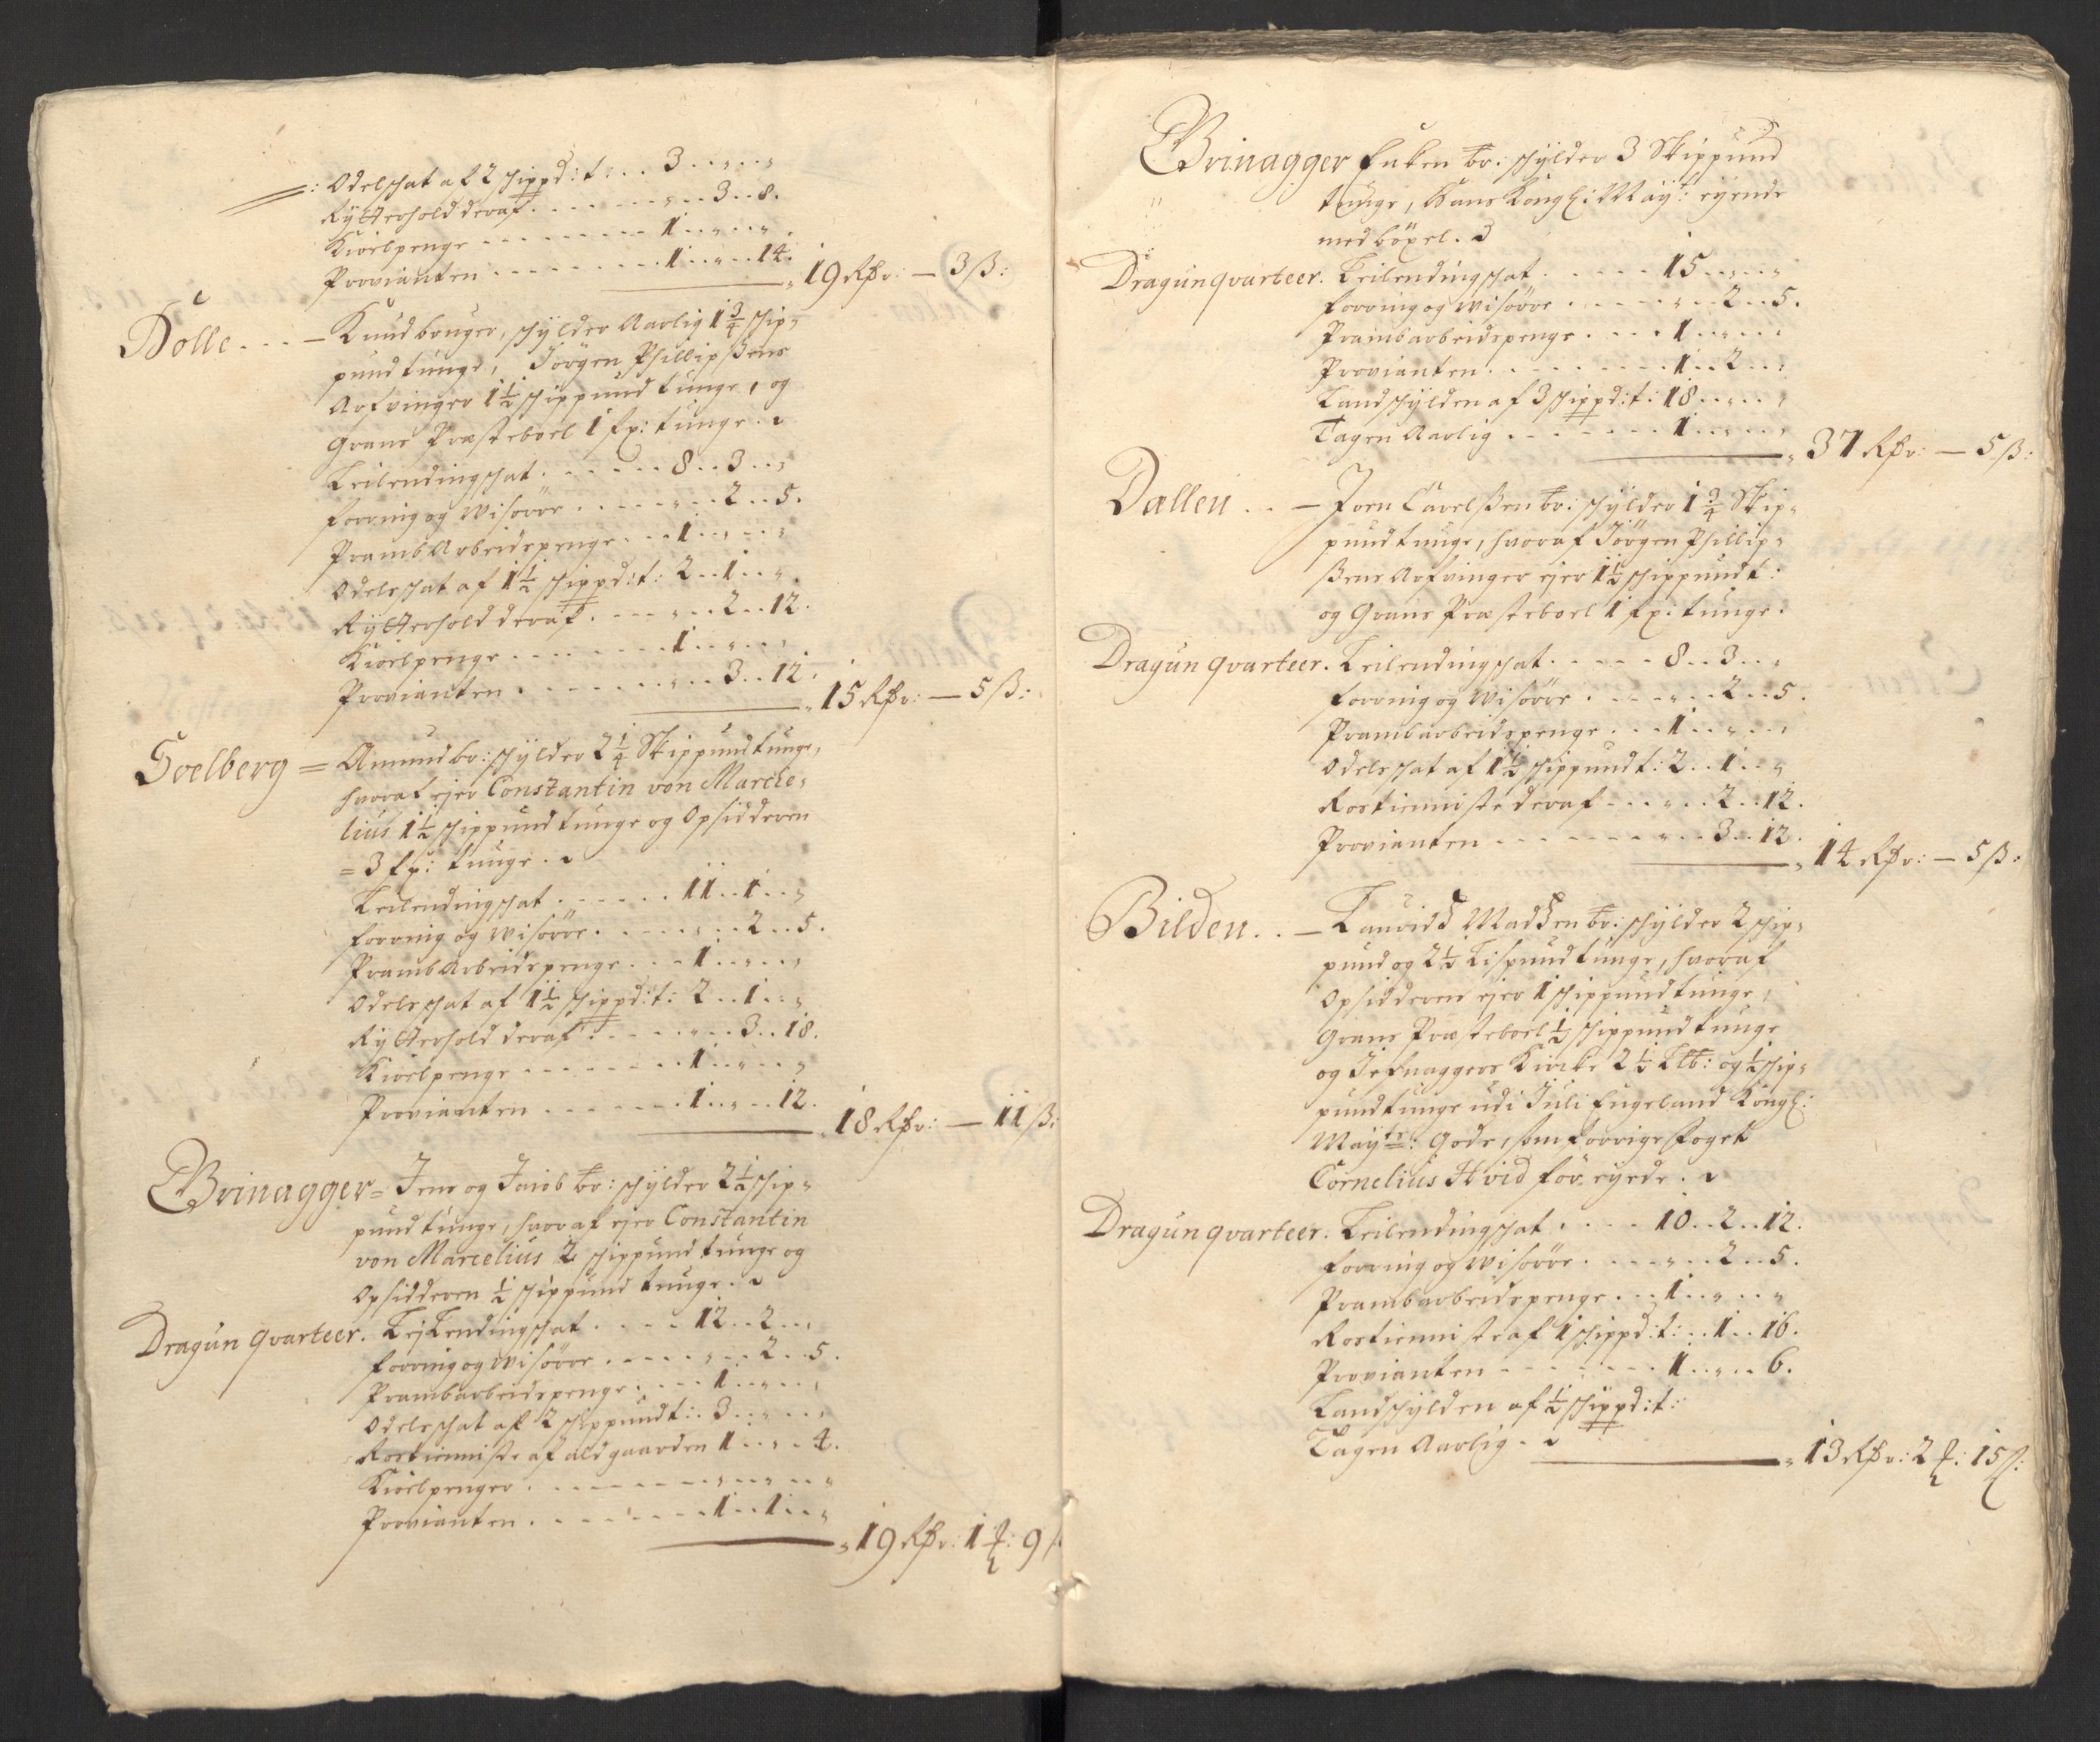 =: Odelschat af 2 schippd: t: . . 3 . . „ . . „
Rytterhold deraf . . . . . . . „ . . 3 . . 8.
Kioelpenge . . . . . . . . 1 . . „ . . „
Provianten . . . . . . . . 1 . . „ . . 14.
19 Rdr: — 3 ß:
Dölle . . . — Knud bruger, schylder Aarlig 1 3/4 schip=
pund tunge, Jörgen Phillipßens
Arfvinger 1 1/2 schippund tunge, og
Grans Præsteboel 1 fr: tunge.
Leilendingschat . . . . . . 8 . . 3 . . „
Forring og Wisøøre . . . . . „ . . 2 . . 5.
Pramb Arbeidspenge . . . 1 . . „ . . „
Odelsschat af 1 1/2 schippd: t: 2 . . 1 . . „
Rytterhold deraf . . . . . „ . . 2 . . 12.
Kioelpenge . . . . . . . . 1 . . „ . . „
Provianten . . . . . . . „ . . 3 . . 12.
15 Rdr: — 5 ß:
Soelberg = Amund br: schylder 2 1/4 Skippund tunge,
hvoraf ejer Constantin von Marce=
lius 1 1/2 schippund tunge og Opsidderen
= 3 fr: tunge.
Leilendingschat . . . . . . 11 . . 1 . . „
Forring og Wisøøre . . . . . „ . . 2 . . 5.
Pramb Arbeidspenge . . . 1 . . „ . . „
Odelsschat af 1 1/2 schippd: t: 2 . . 1 . . „
Rytterhold deraf . . . . . „ . . 3 . . 18.
Kioelpenge . . . . . . . . 1 . . „ . . „
Provianten . . . . . . . 1 . . „ . . 12.
18 Rdr: — 11 ß:
Brinagger = Jens og Jacob br: schylder 2 1/2 schip=
pund tunge, hvoraf ejer Constantin
von Marcelius 2 schippund tunge og
Opsidderen 1/2 schippund tunge.
Dragun qvarteer. Lejlendingschat . . . . 12 . . 2 . . „
Forring og Wisøøre . . . . . „ . . 2 . . 5.
Prambarbeidspenge . . . . 1 . . „ . . „
Odelsschat af 2 schippund t: . 3 . . „ . . „
Rostienniste af ald gaarden 1 . . „ . . 4.
Kioelpenger . . . . . . . . „ . . „ . . „
Provianten . . . . . . . . 1 . . 1 . . „
19 Rdr: 1 ƒ: 9
Brinagger Enken br: schylder 3 Skippund
tunge, Hans Kongl: May: eyende
med böxel.
Dragun qvarteer. Leilendingschat . . . . . 15 . . „ . . „
Forring og Wisøøre . . . . . „ . . 2 . . 5.
Prambarbeidspenge . . . . 1 . . „ . . „
Provianten . . . . . . . . 1 . . 2 . . „
Landschylden af 3 schippd: t: 18 . . „ . . „
Tagen Aarlig . . . . . . . 1 . . „ . . „
37 Rdr: — 5 ß:
Dallen . . — Joen Carelßen br: schylder 1 3/4 Skip=
pund tunge, hvoraf Jörgen Phillip=
ßens Arfvinger ejer 1 1/2 schippund t:
og Grans Præsteboel 1 fr: tunge.
Dragun qvarteer. Leilendingschat . . . . . 8 . . 3 . . „
Forring og Wisøøre . . . . . „ . . 2 . . 5.
Prambarbeidspenge . . . 1 . . „ . . „
Odelsschat af 1 1/2 schippund t: 2 . . 1 . . „
Rostienniste deraf . . . „ . . 2 . . 12.
Provianten . . . . . . . „ . . 3 . . 12.
14 Rdr: — 5 ß:
Bilden . . — Lauridß Madßen br: schylder 2 schip=
pund og 2 1/2 Lispund tunge, hvoraf
Opsidderen ejer 1 schippund tunge,
Grans Præsteboel 1/2 schippund tunge
og Jefnaggers Kircke 2 1/2 Ltb: og 1/2 schip=
pund tunge udi Juli Engeland Kongl:
Mayts: Gods, som forrige Foget
Cornelius Hvid för eyede.
Dragun qvarteer. Leilendingschat . . . . 10 . . 2 . . 12.
Forring og Wisøøre . . . . . „ . . 2 . . 5.
Prambarbeidspenge . . . 1 . . „ . . „
Rostienniste af 1 schippd: t: . . 1 . . 16.
Provianten . . . . . . . . 1 . . „ . . 6.
Landschylden af 1/2 schippd: t:
Tagen Aarlig.
13 Rdr: 2 ƒ: 15 ß: